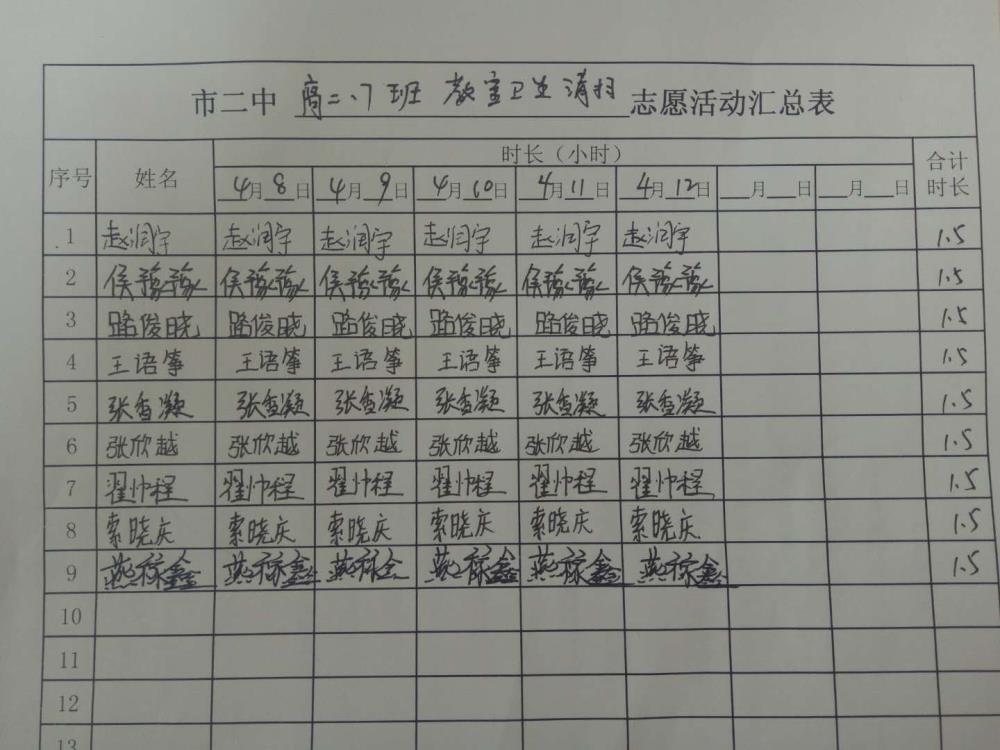 市二中 高二.7班 教室卫生清扫 志愿活动汇总表
序号 姓名 时长（小时） 合计时长
4月8日 4月9日 4月10日 4月11日 4月12日 月 日 月 日
1 赵润宇 赵润宇 赵润宇 赵润宇 赵润宇 赵润宇 1.5
2 侯豫豫 侯豫豫 侯豫豫 侯豫豫 侯豫豫 侯豫豫 1.5
3 路俊晓 路俊晓 路俊晓 路俊晓 路俊晓 路俊晓 1.5
4 王语筝 王语筝 王语筝 王语筝 王语筝 王语筝 1.5
5 张香凝 张香凝 张香凝 张香凝 张香凝 张香凝 1.5
6 张欣越 张欣越 张欣越 张欣越 张欣越 张欣越 1.5
7 翟帅程 翟帅程 翟帅程 翟帅程 翟帅程 翟帅程 1.5
8 索晓庆 索晓庆 索晓庆 索晓庆 索晓庆 索晓庆 1.5
9 1.5
10
11
12
13